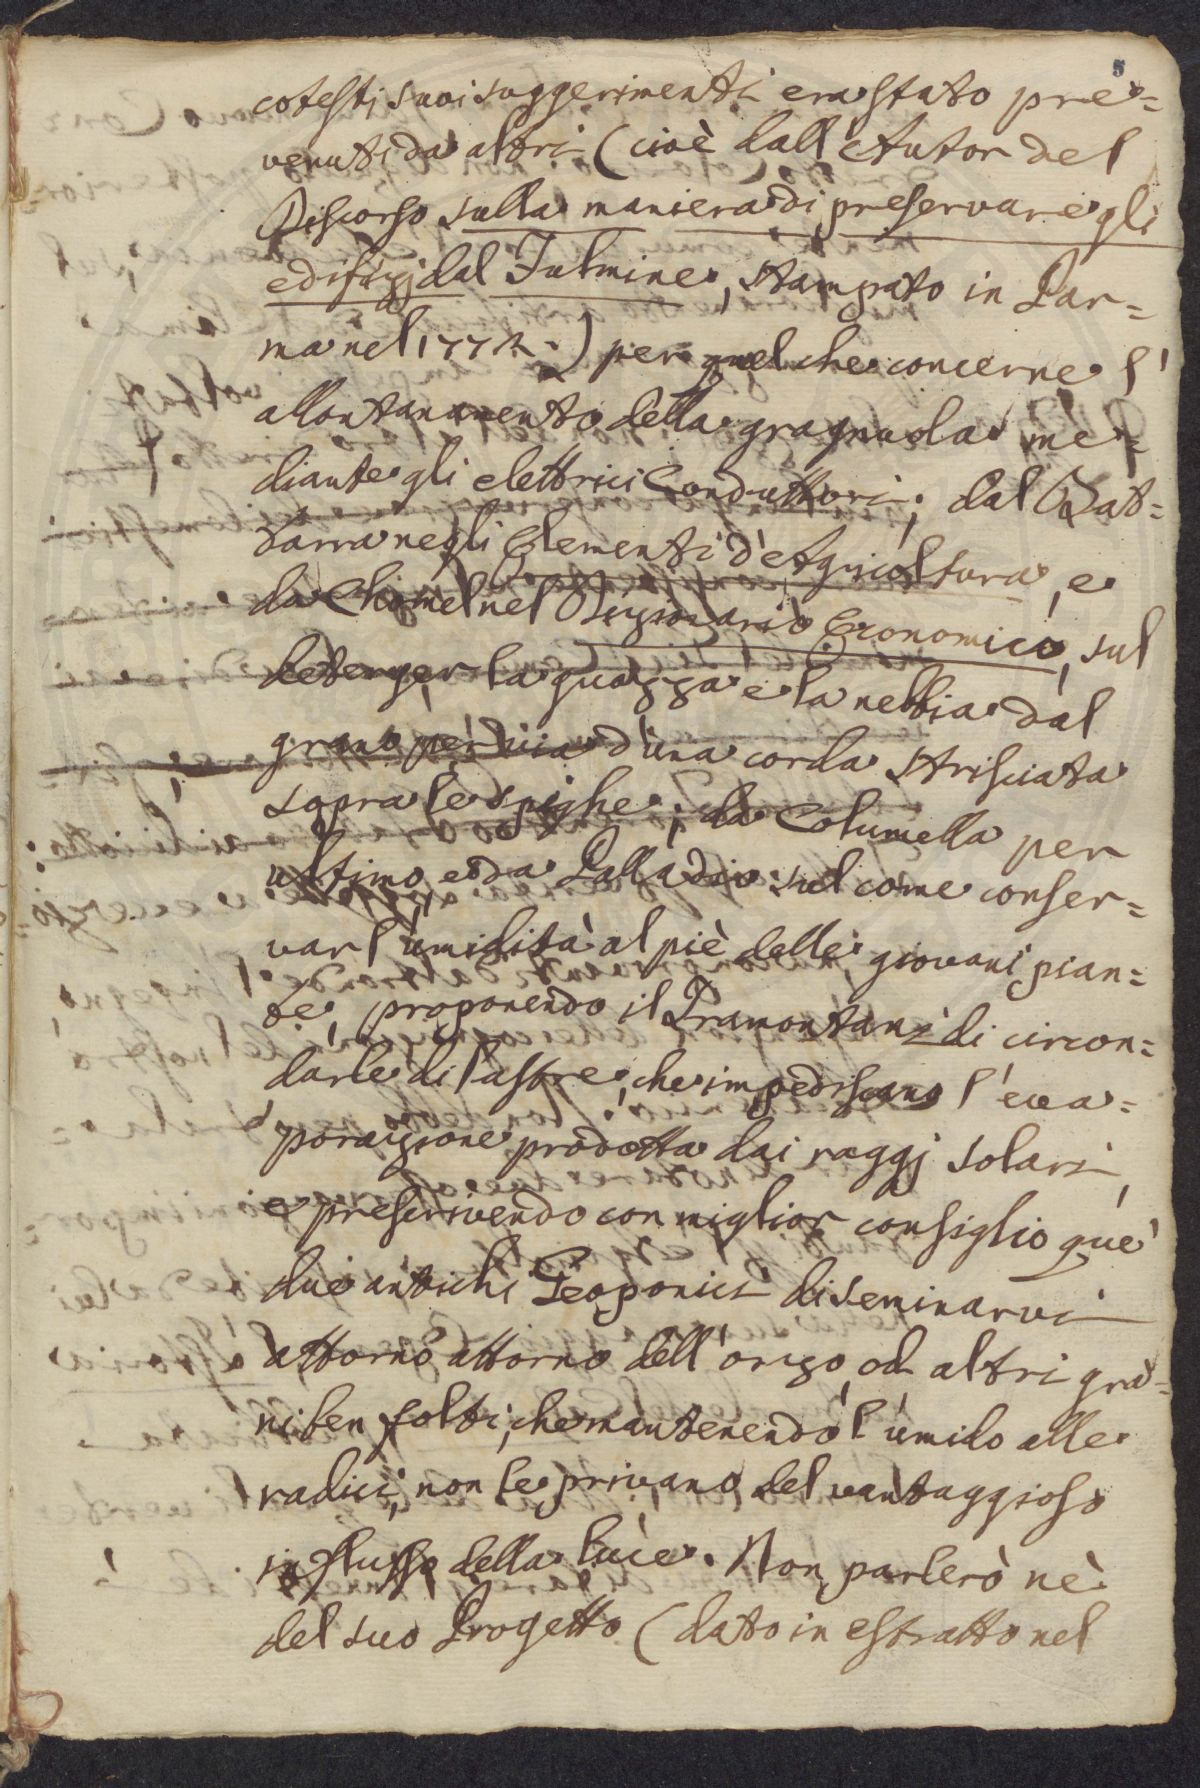 5
cotesti suoi suggerimenti era stato pre=
venuti da altri (cioè dall'Autor del
Discorso sulla maniera di preservare gli
edifizj dal Fulmine, stampato in Par=
ma nel 1772.) per quel che concerne l'
allontanamento della gragnuola me=
diante gli elettrici Conduttori; dal Bat=
tarra negli Elementi d'Agricoltura, e
da Chomel nel Dizionario Economico, sul
deterger la guazza e la nebbia dal
grano per via d'una corda strisciata
sopra le spighe; da Columella per
ultimo e da Palladio sul come conser=
var l'umidità al piè delle giovani pian=
te, proponendo il Pramontani di circon=
darle di lastre, che impediscano l'eva=
porazione prodotta dai raggj solari,
e prescrivendo con miglior consiglio que'
due antichi Geoponici di seminarvi
attorno attorno dell'orzo, od altri gra=
ni ben folti, che mantenendo l'umido alle
radici, non le privano del vantaggioso
influsso della luce. Non parlerò nè
del suo Progetto (dato in estratto nel